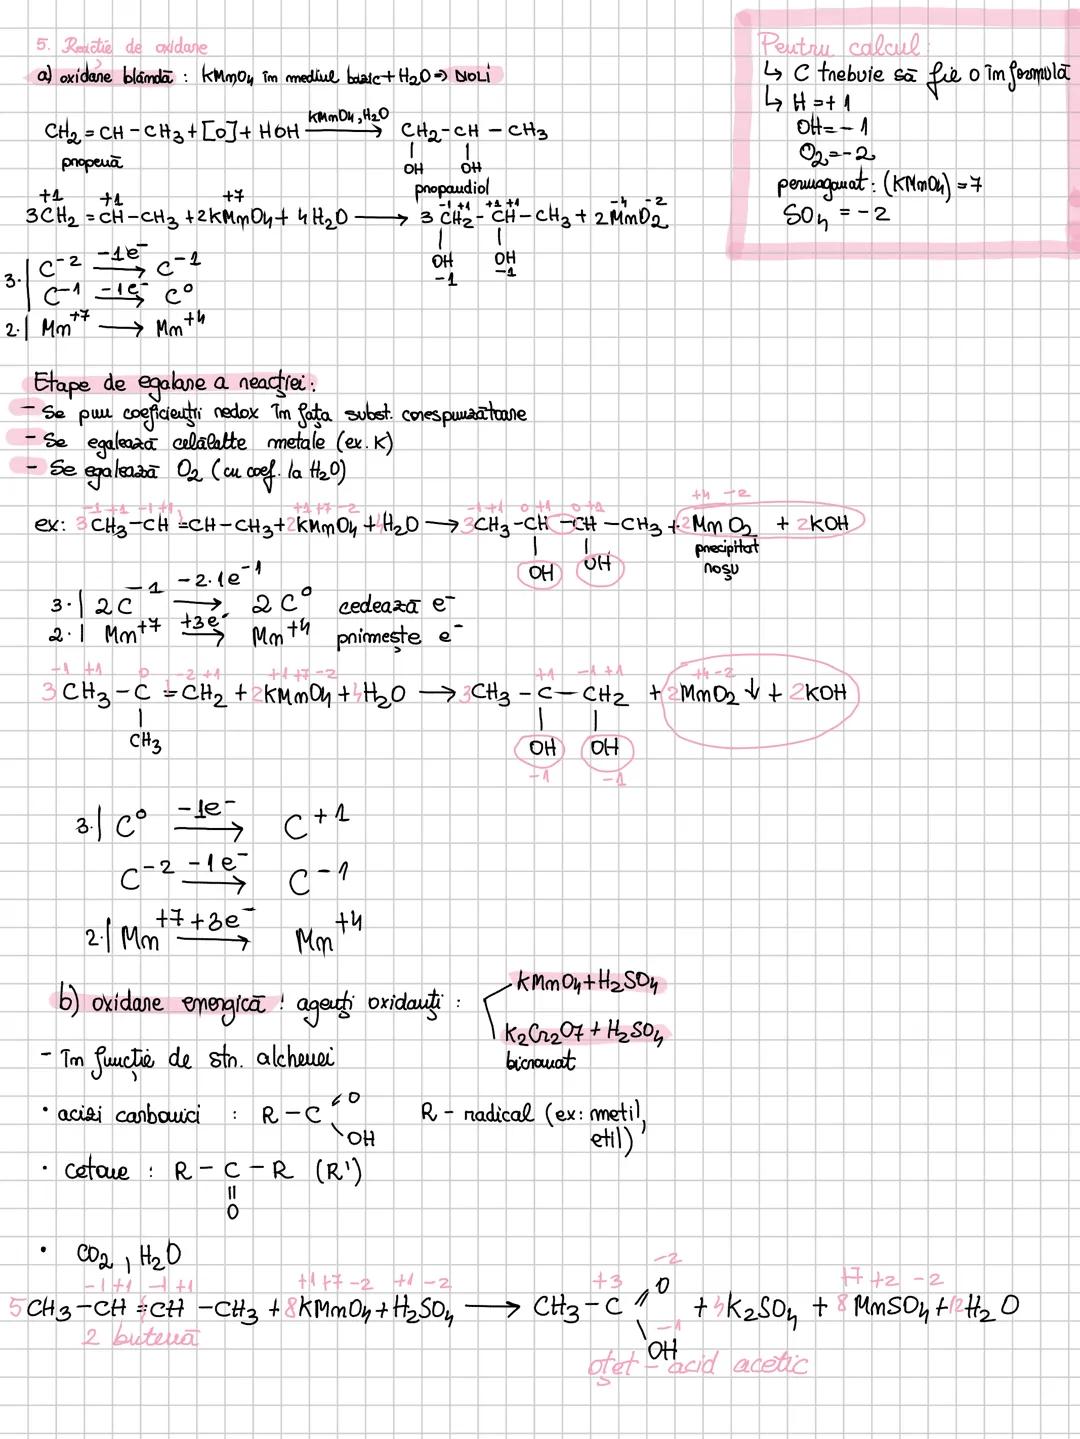 5. Reacție de oxidare
a) oxidare blândă : KMnO4 în mediul bazic + H2O => DIOLI
CH2 = CH - CH3 + [O] + HOH —KMnO4, H2O→ CH2 - CH - CH3
| |
OH OH
propenă
propandiol
+1 +1 +7 -1 +1 +1 +1 -4 -2
3CH2 = CH - CH3 + 2KMnO4 + 4H2O → 3 CH2 - CH - CH3 + 2MnO2
| |
OH OH
-1 -1
3·| C-2 —-1e-→ C-1
C-1 —-1e-→ C0
2·| Mn+7 → Mn+4
Pentru calcul:
↳ C trebuie să fie 0 în formulă
↳ H = +1
OH = -1
O2 = -2
permaganat : (KMnO4) = 7
SO4 = -2
Etape de egalare a reacției:
- Se pun coeficienții redox în fața subst. corespunzătoare
- Se egalează celălalte metale (ex. K)
- Se egalează O2 (cu coef. la H2O)
-1 +1 -1 +1 +1 +7 -2 -1 +1 0 +1 0 +1 +4 -2
ex: 3CH3 - CH = CH - CH3 + 2KMnO4 + 4H2O → 3CH3 - CH - CH - CH3 + 2MnO2 + 2KOH
| |
OH OH
precipitat
noșu
3·| 2C-1 —-2·1e-1→ 2C0 cedează e-
2·| Mn+7 —+3e-→ Mn+4 primește e-
-1 +1 0 -2 +1 +1 +7 -2 +1 -1 +1 +4 -2
3CH3 - C = CH2 + 2KMnO4 + 4H2O → 3CH3 - C - CH2 + 2MnO2 ↓ + 2KOH
| | |
CH3 OH OH
-1 -1
3·| C0 —-1e-→ C+1
C-2 —-1e-→ C-1
2·| Mn+7 —+3e-→ Mn+4
b) oxidare energică : agenți oxidanți :
KMnO4 + H2SO4
K2Cr2O7 + H2SO4
bicromat
- în funcție de str. alchenei
• acizi carboxici : R - C = O
\ OH
R - radical (ex: metil,
etil)
• cetone : R - C - R (R')
||
O
• CO2, H2O
-1 +1 -1 +1 +1 +7 -2 +1 -2 +3 -2 +7 +2 -2
5CH3 - CH = CH - CH3 + 8KMnO4 + H2SO4 → CH3 - C = O + 4K2SO4 + 8 MnSO4 + 12H2O
-1
\ OH
2 butenă
oțet - acid acetic